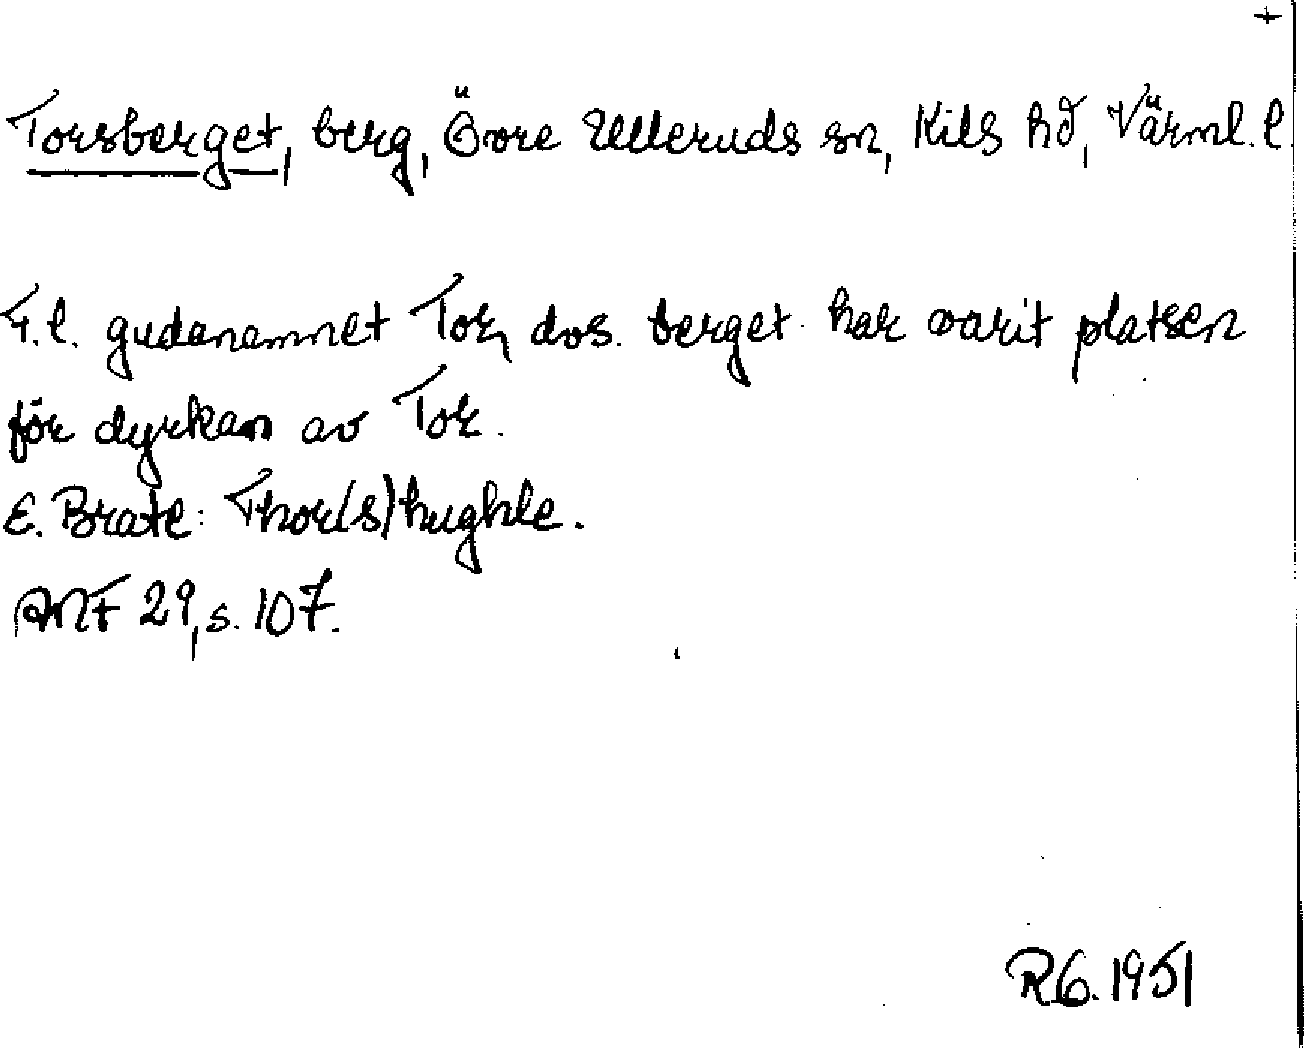 +
Torsberget, berg, Övre Ulleruds sn, Kils hd, Värml. l.
F. l. gudanamnet Tor, dvs. berget har varit platsen
för dyrkan av Tor.
E. Brate: Thor(s)hughle.
ANF 29, s. 107.
RG. 1951